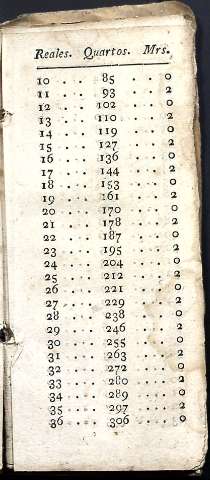 Reales. Quartos. Mrs.
10 ... 85 ... 0
11 ... 93 ... 2
12 ... 102 ... 0
13 ... 110 ... 2
14 ... 119 ... 0
15 ... 127 ... 2
16 ... 136 ... 0
17 ... 144 ... 2
18 ... 153 ... 0
19 ... 161 ... 2
20 ... 170 ... 0
21 ... 178 ... 2
22 ... 187 ... 0
23 ... 195 ... 2
24 ... 204 ... 0
25 ... 212 ... 2
26 ... 221 ... 0
27 ... 229 ... 2
28 ... 238 ... 0
29 ... 246 ... 2
30 ... 255 ... 0
31 ... 263 ... 2
32 ... 272 ... 0
33 ... 280 ... 2
34 ... 289 ... 0
35 ... 297 ... 2
36 ... 306 ... 0